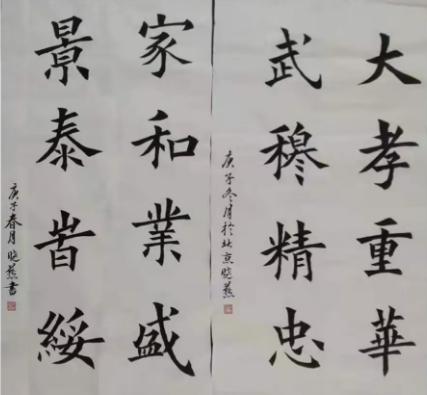 大孝重華
武穆精忠
庚子冬月於北京晓燕
家和業盛
景泰旹綏
庚子春月晓燕書